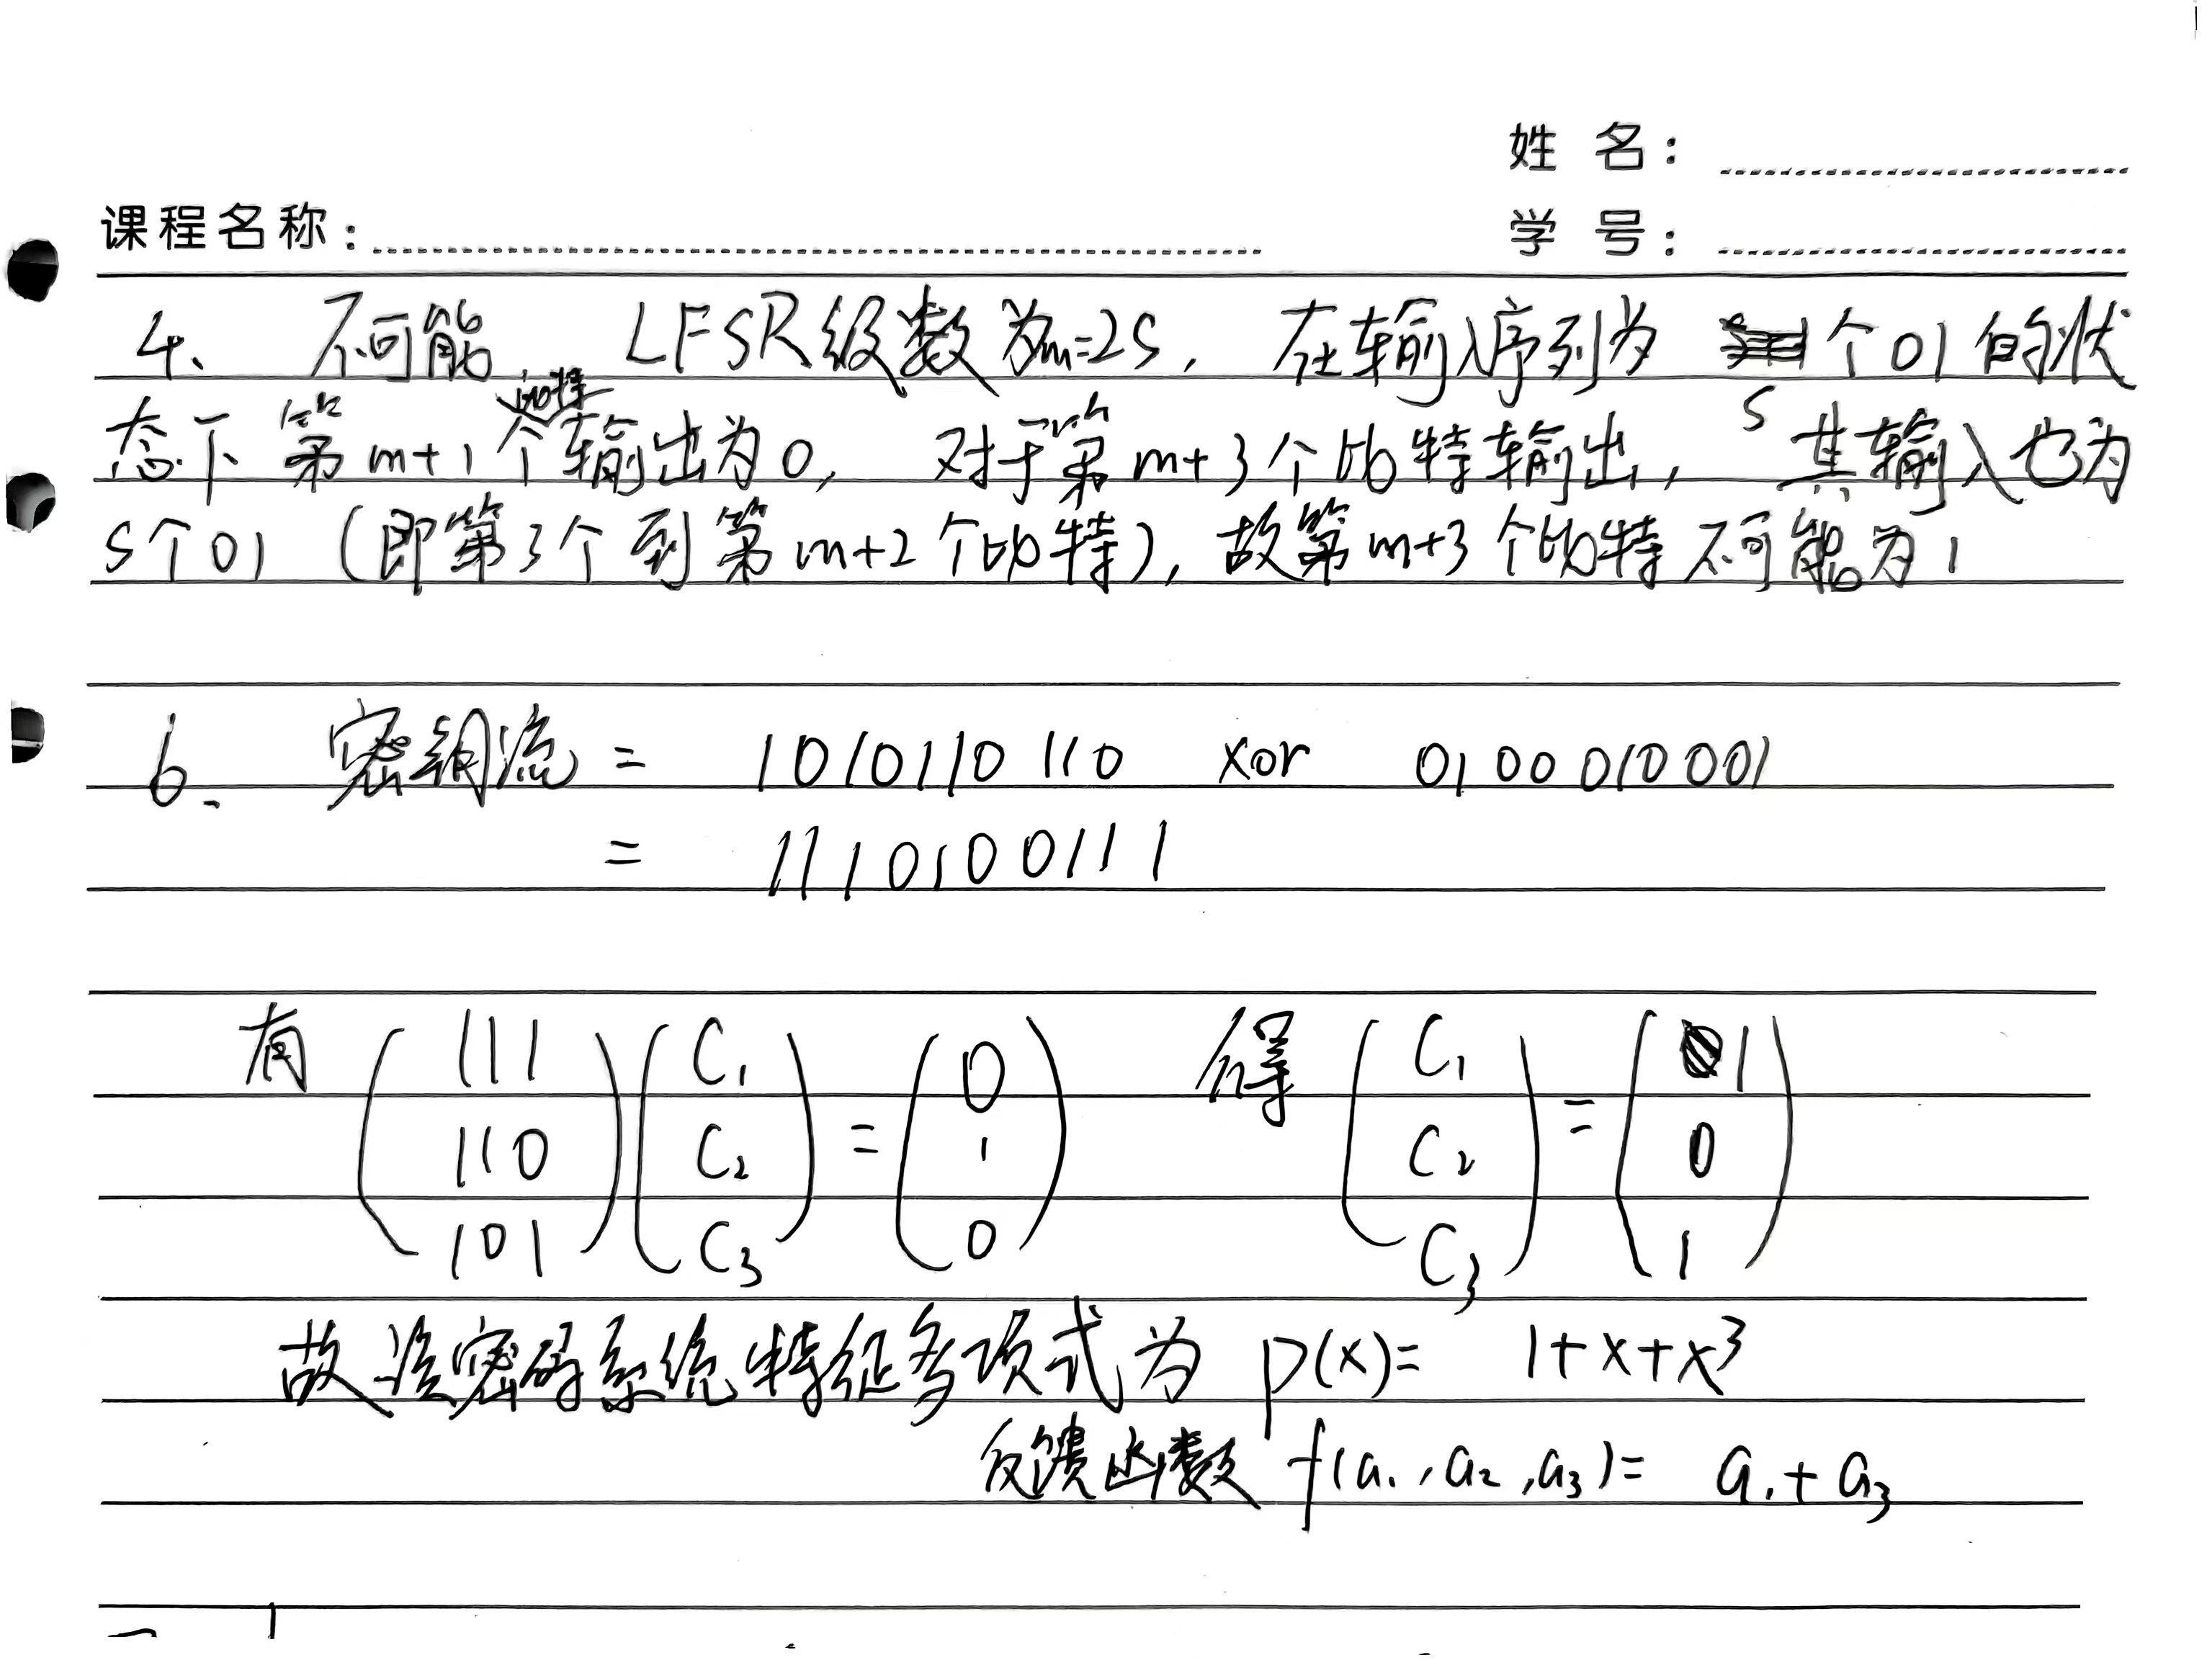 姓 名：
课程名称：
学 号：
4、 不可能， LFSR级数为m=2s, 在输入序列为 s个01的状
态下第m+1个比特输出为0, 对于第m+3个比特输出, 其输入也为
s个01 (即第3个到第m+2个比特), 故第m+3个比特不可能为1
6、 密钥流 = 1010110110 xor 0100010001
= 1110100111
有 ( 111 ) ( C₁ ) = ( 0 ) 得 ( C₁ ) = ( 1 )
( 110 ) ( C₂ ) = ( 1 ) ( C₂ ) = ( 0 )
( 101 ) ( C₃ ) = ( 0 ) ( C₃ ) = ( 1 )
故该密码系统特征多项式为 p(x)= 1+x+x³
反馈函数 f(a₁,a₂,a₃)= a₁+a₃